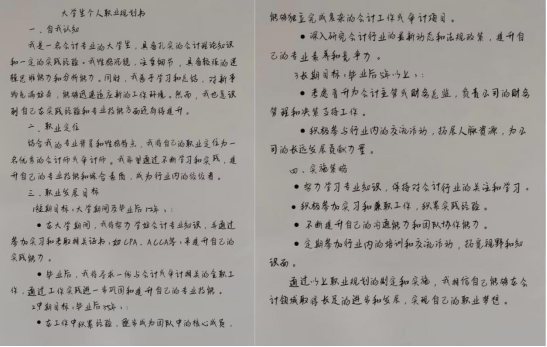 大学生个人职业规划书
一、自我认知
我是一名会计专业的大学生，具备扎实的会计理论知识
和一定的实践经验。我性格沉稳，注重细节，具备较强的逻
辑思维能力和分析能力。同时，我善于学习和总结，对新事
物充满好奇，能够迅速适应新的工作环境。然而，我也意识
到自己在实践经验和专业技能方面还有待提升。
二、职业定位
结合我的专业背景和性格特点，我将自己的职业定位为一
名优秀的会计师或审计师。我希望通过不断学习和实践，提
升自己的专业技能和综合素质，成为行业内的佼佼者。
三、职业发展目标
1短期目标：大学期间及毕业后1年：
●在大学期间，我将努力学好会计专业知识，并通过
参加实习和考取相关证书，如CPA、ACCA等，来提升自己的
实践能力。
●毕业后，我将寻求一份与会计或审计相关的全职工
作，通过工作实践进一步巩固和提升自己的专业技能。
2中期目标：毕业后3年：
●在工作中积累经验，逐步成为团队中的核心成员，
能够独立完成复杂的会计工作或审计项目。
●深入研究会计行业的最新动态和法规政策，提升自
己的专业素养和竞争力。
3长期目标：毕业后5年以上：
●考虑晋升为会计主管或财务总监，负责公司的财务
管理和决策支持工作。
●积极参与行业内的交流活动，拓展人脉资源，为公
司的长远发展贡献力量。
四、实施策略
●努力学习专业知识，保持对会计行业的关注和学习。
●积极参加实习和兼职工作，积累实践经验。
●不断提升自己的沟通能力和团队协作能力。
●定期参加行业内的培训和交流活动，拓宽视野和知
识面。
通过以上职业规划的制定和实施，我相信自己能够在会
计领域取得长足的进步和发展，实现自己的职业梦想。